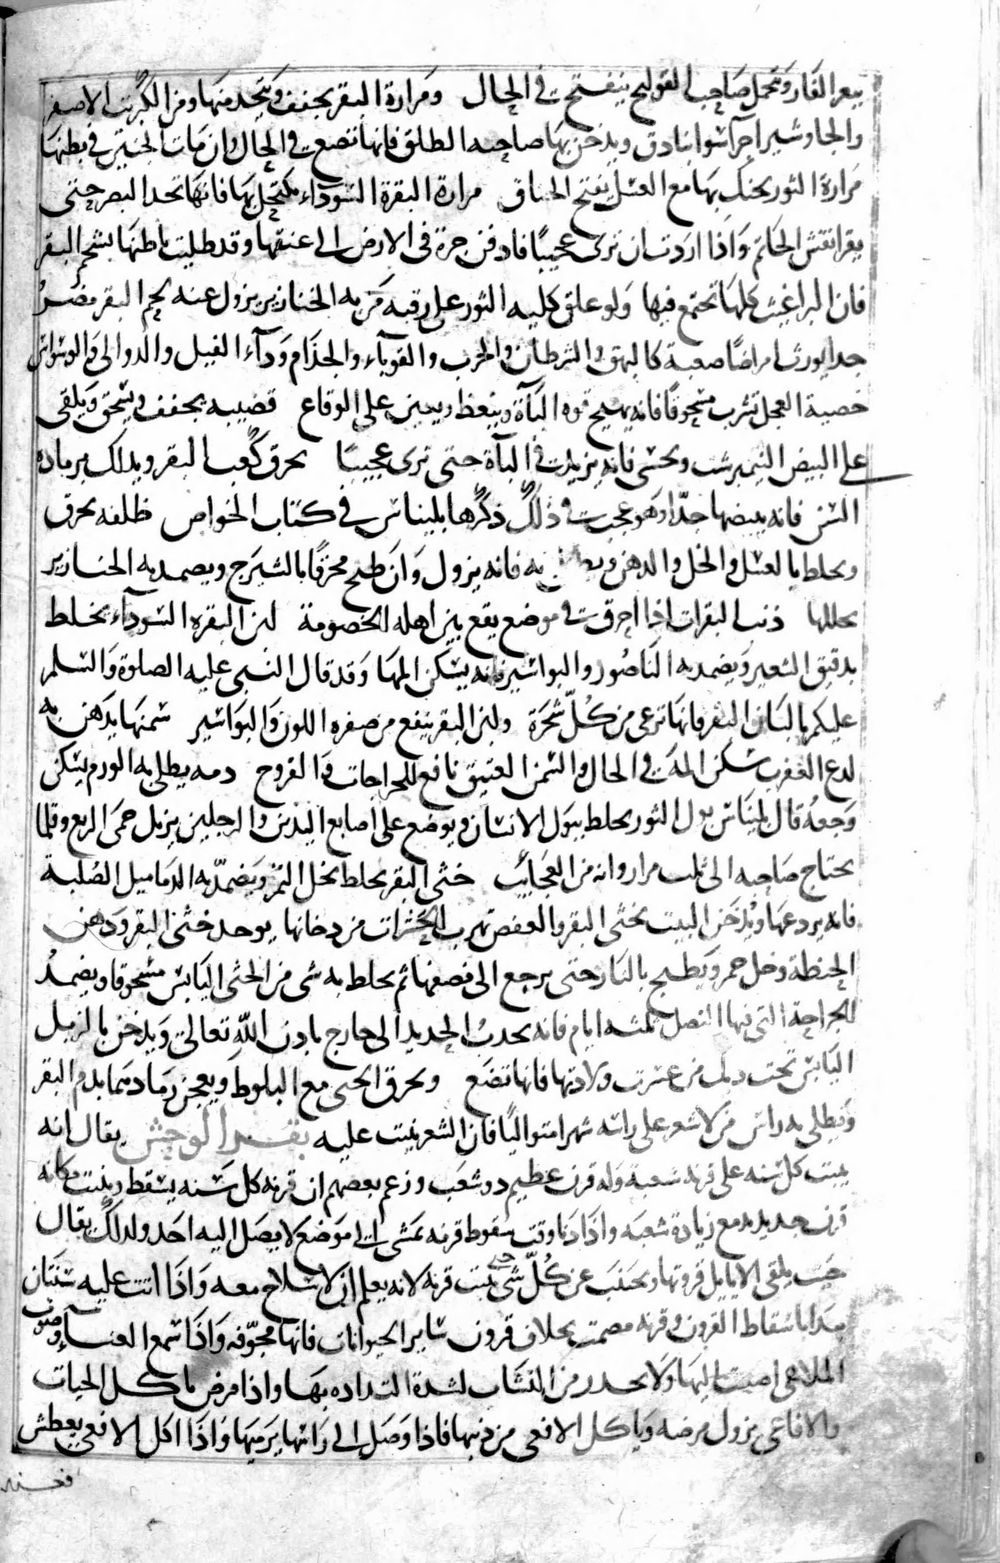 ببعر الفار وتحمل صاحب القولنج ينفتح في الحال ومرارة البقر يجفف ويتخذ منها ومن الكبريت الاصفر
والجاوشير اجزآء سوا بنادق ويدخن بها صاحبه الطلق فانها تضع في الحال وان مات الجنين في بطنها
مرارة الثور يحنك بها مع العسل يفتح الخناق مرارة البقرة السوداء يكتحل بها فانها تحد البصر حتى
يقرا نقش الخاتم واذا اردت ان ترى عجيبًا فادفن جرة في الارض الى عنقها وقد طليت باطنها بشحم البقر
فان البراغيث كلها تجتمع فيها ولو علق كليه الثور على رقبه من به الخنازير يزول عنه لحم البقر مضر
جدا يورث امراضًا صعبة كالبهق والسرطان والجرب والقوبآء والجذام ودآء الفيل والدوالى والوسواس
خصية العجل تشرب مسحوقًا فانه يهيج قوه البآة وينعظ ويعين على الوقاع قضيبه يجفف ويسحق ويلقى
على البيض النيمبرشت ويحسى فانه يزيد في البآة حتى ترى عجيبًا يحرق كعب البقر ويدلك برماده
السن فانه يبيضها جدًا وهو عجيب في ذلك ذكرها بليناس في كتاب الخواص ظلفه يحرق
ويخلط بالعسل والخل والدهن به فانه يزول وان طبخ محرقًا بالشيرج ويضمد به الخنازير
يحللها ذنب البقرات اذا احرقت في موضع يقع بين اهله الخصومة لبن البقره السودآء يخلط
بدقيق الشعير ويضمد به الناصور والبواسير فانه يسكن المها وقد قال النبي عليه الصلوة والسلم
عليكم بالبان البقر فانها ترعى من كل شجرة ولبن البقر ينفع من صفره اللون والبواسير سمنها يدهن به
لدغ العقرب سكن المه في الحال والسمن العتيق نافع للجراحات والقروح دمه يطلى به الورم يسكن
وجعه قال بليناس بول الثور يخلط ببول الانسان ويوضع على اصابع اليدين والرجلين يزيل حمى الربع وقلما
يحتاج صاحبه الى ثلث مرار وانه من العجائب خثى البقر يخلط بخل التمر ويضمد به الدماميل الصلبة
فانه يردعها ويدخن البيت بخثى البقر والعفص تهرب الحشرات من دخانها يوخد خثى البقر ودهن
الحنطة وخل خمر ويطبخ بالنار حتى يرجع الى نصفها ثم يخلط به شى من الخثى اليابس مسحوقا ويضمد
الجراحة التي فيها النصل ثلثه ايام فانه يجذب الحديد الى خارج باذن الله تعالى ويدخن بالزبل
اليابس تحت من عسرت ولادتها فانها تضع ويحرق الخثى مع البلوط ويعجن رمادتهما بدم البقر
ويطلى به راس من لا شعر على راسه شهرا متواليًا فان الشعر ينبت عليه بقر الوحش يقال انه
ينبت كل سنه على قرنه شعبة وله قرن عظيم ذو شعب وزعم بعضهم ان قرنه كل سنه يسقط وينبت مكانه
قرن جديد مع زيادة شعبه واذا دنا وقت سقوط قرنه تمشى الى موضع لا يصل اليه احد ولذلك يقال
حيث يلقى الايايل قرونها ويجنب عن كل شى حتى ينبت قرنه لانه يعلم ان لا سلاح معه واذا اتت عليه سنتان
يبدا باسقاط القرون وقرنه مصمت بخلاف قرون ساير الحيوانات فانها مجوفه واذا سمع الغناء وصوت
الملاهى اصغت اليها ولا يحذر من النشاب لشدة التذاذه بها واذا مرض ياكل الحيات
والافاعى يزول مرضه وياكل الافعى من ذنبها فاذا وصل الى راسها يرميها واذا اكل الافعى يعطش